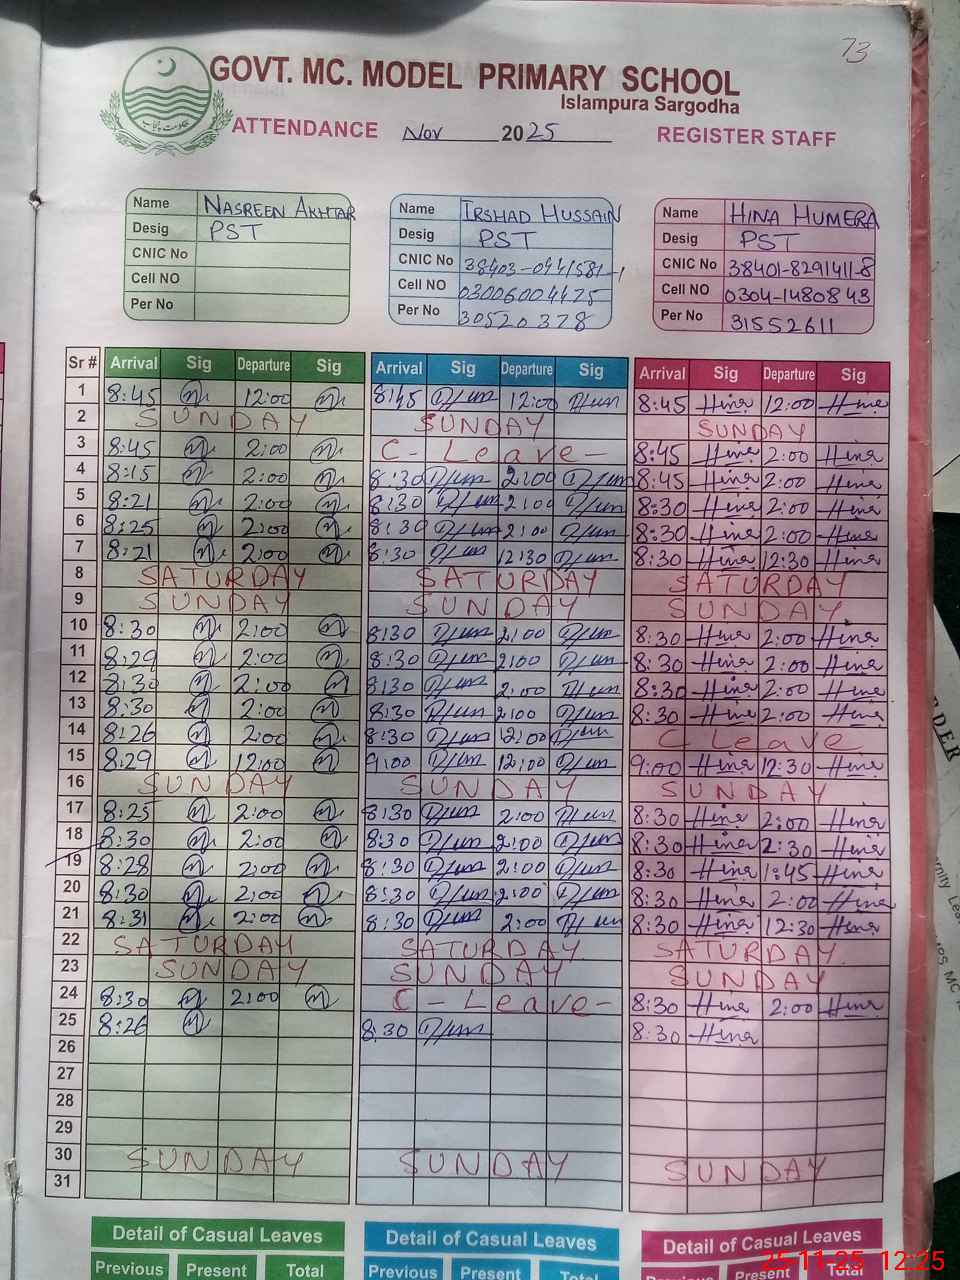 73
GOVT. MC. MODEL PRIMARY SCHOOL
Islampura Sargodha
ATTENDANCE Nov 2025 REGISTER STAFF
Name NASREEN AKHTAR Name IRSHAD HUSSAIN Name HINA HUMERA
Desig PST Desig PST Desig PST
CNIC No CNIC No 38403-0441581-1 CNIC No 38401-8291411-8
Cell NO Cell NO 03006004475 Cell NO 0304-1480843
Per No Per No 30520378 Per No 31552611
Sr # Arrival Sig Departure Sig Arrival Sig Departure Sig Arrival Sig Departure Sig
1 8:45 12:00 8:45 12:00 8:45 Hina 12:00 Hina
2 SUNDAY SUNDAY SUNDAY
3 8:45 2:00 C- Leave- 8:45 Hina 2:00 Hina
4 8:15 2:00 8:30 2:00 8:45 Hina 2:00 Hina
5 8:21 2:00 8:30 2:00 8:30 Hina 2:00 Hina
6 8:25 2:00 8:30 2:00 8:30 Hina 2:00 Hina
7 8:21 2:00 8:30 12:30 8:30 Hina 12:30 Hina
8 SATURDAY SATURDAY SATURDAY
9 SUNDAY SUNDAY SUNDAY
10 8:30 2:00 8:30 2:00 8:30 Hina 2:00 Hina
11 8:29 2:00 8:30 2:00 8:30 Hina 2:00 Hina
12 8:30 2:00 8:30 2:00 8:30 Hina 2:00 Hina
13 8:30 2:00 8:30 2:00 8:30 Hina 2:00 Hina
14 8:26 2:00 8:30 12:00 C Leave
15 8:29 12:00 9:00 12:00 9:00 Hina 12:30 Hina
16 SUNDAY SUNDAY SUNDAY
17 8:25 2:00 8:30 2:00 8:30 Hina 2:00 Hina
18 8:30 2:00 8:30 2:00 8:30 Hina 2:30 Hina
19 8:28 2:00 8:30 2:00 8:30 Hina 1:45 Hina
20 8:30 2:00 8:30 2:00 8:30 Hina 2:00 Hina
21 8:31 2:00 8:30 2:00 8:30 Hina 12:30 Hina
22 SATURDAY SATURDAY SATURDAY
23 SUNDAY SUNDAY SUNDAY
24 8:30 2:00 C- Leave- 8:30 Hina 2:00 Hina
25 8:26 8:30 8:30 Hina
26
27
28
29
30 SUNDAY SUNDAY SUNDAY
31
Detail of Casual Leaves Detail of Casual Leaves Detail of Casual Leaves
Previous Present Total Previous Present Total Previous Present Total
25-11-25 12:25